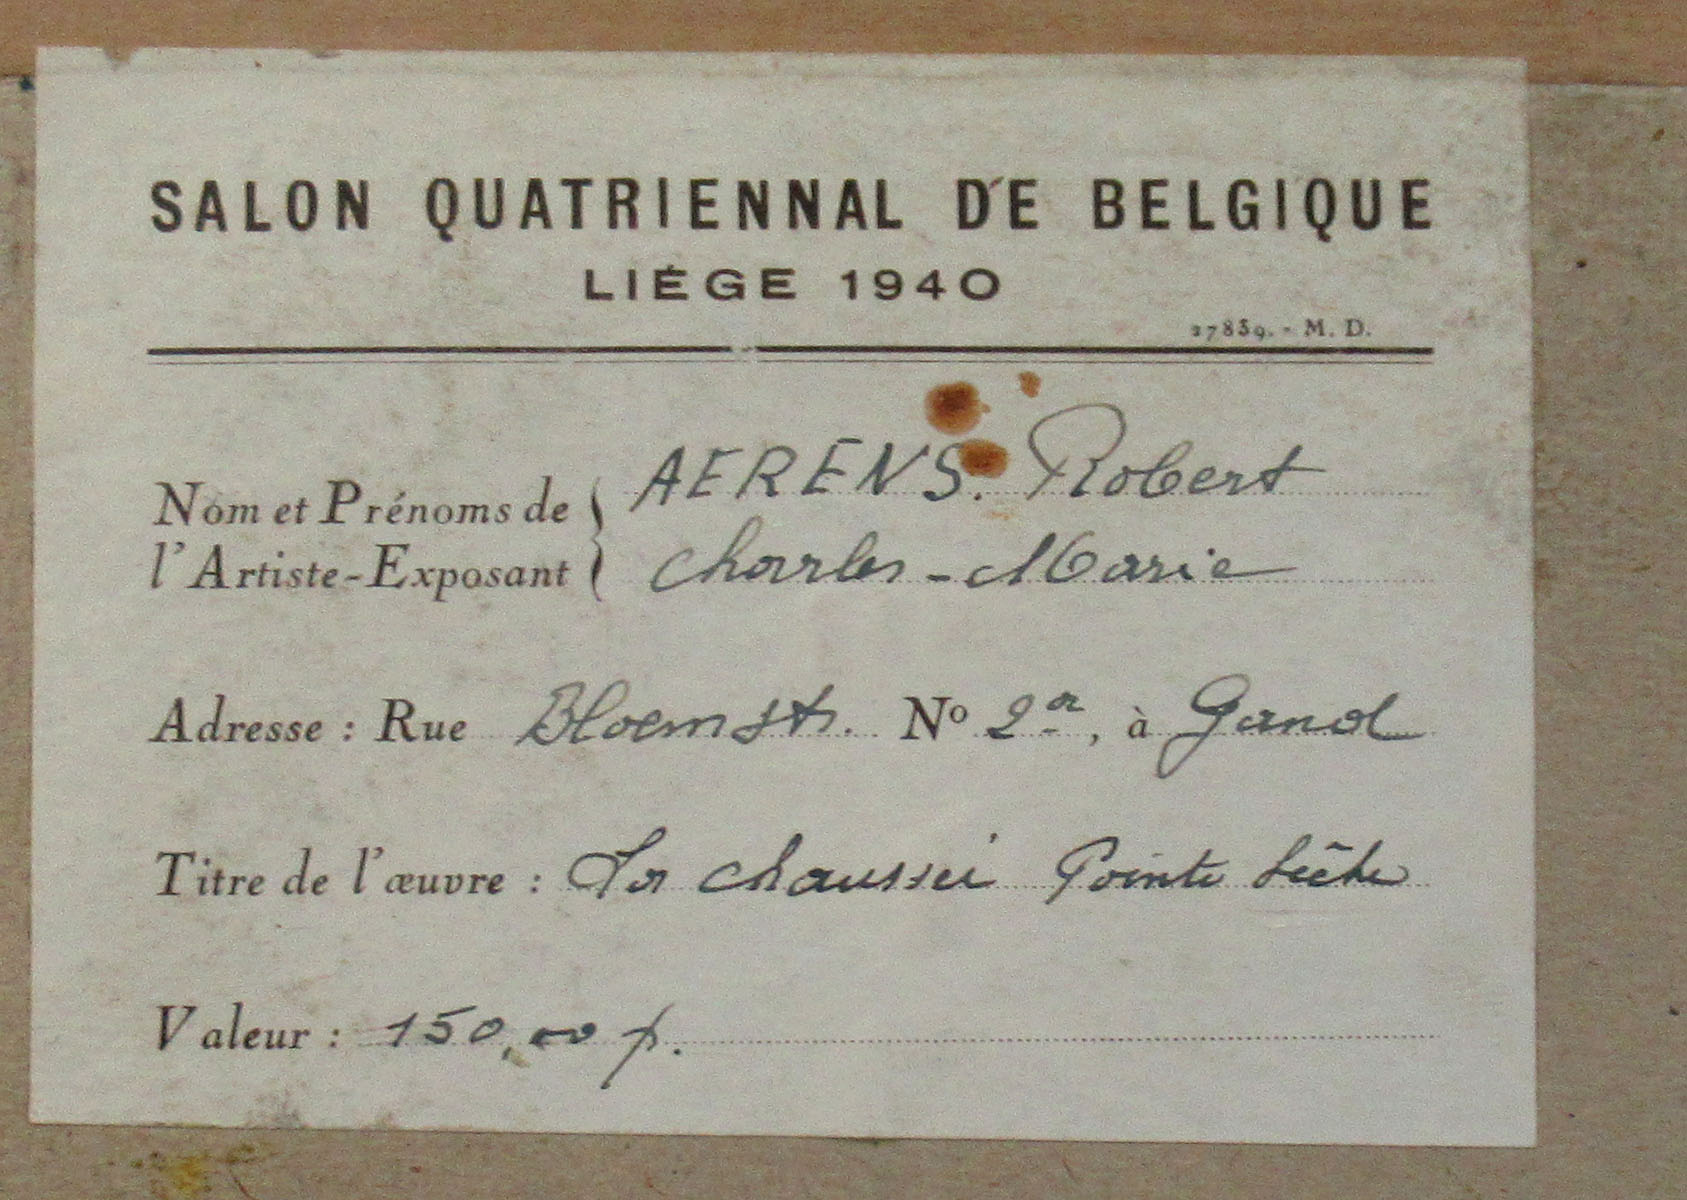 SALON QUATRIENNAL DE BELGIQUE
LIÉGE 1940
27859. - M. D.
Nom et Prénoms de AERENS. Robert
l'Artiste-Exposant Charles-Marie
Adresse : Rue Bloemstr. Nº 2a, à Gand
Titre de l'œuvre : La chaussée Pointe Sêche
Valeur : 150,00 f.